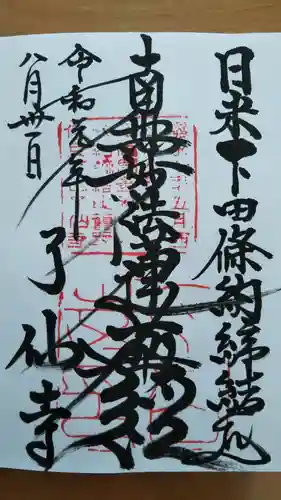 日米下田條約締結処
南無妙法蓮華経
令和元年
八月卅一日
了仙寺